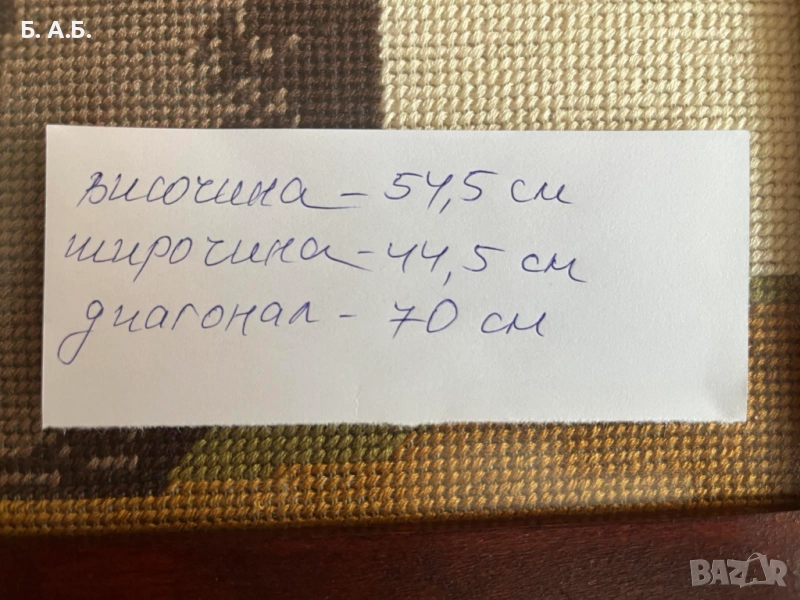 Б. А.Б.
височина - 54,5 см
широчина - 44,5 см
диагонал - 70 см
BAZAR